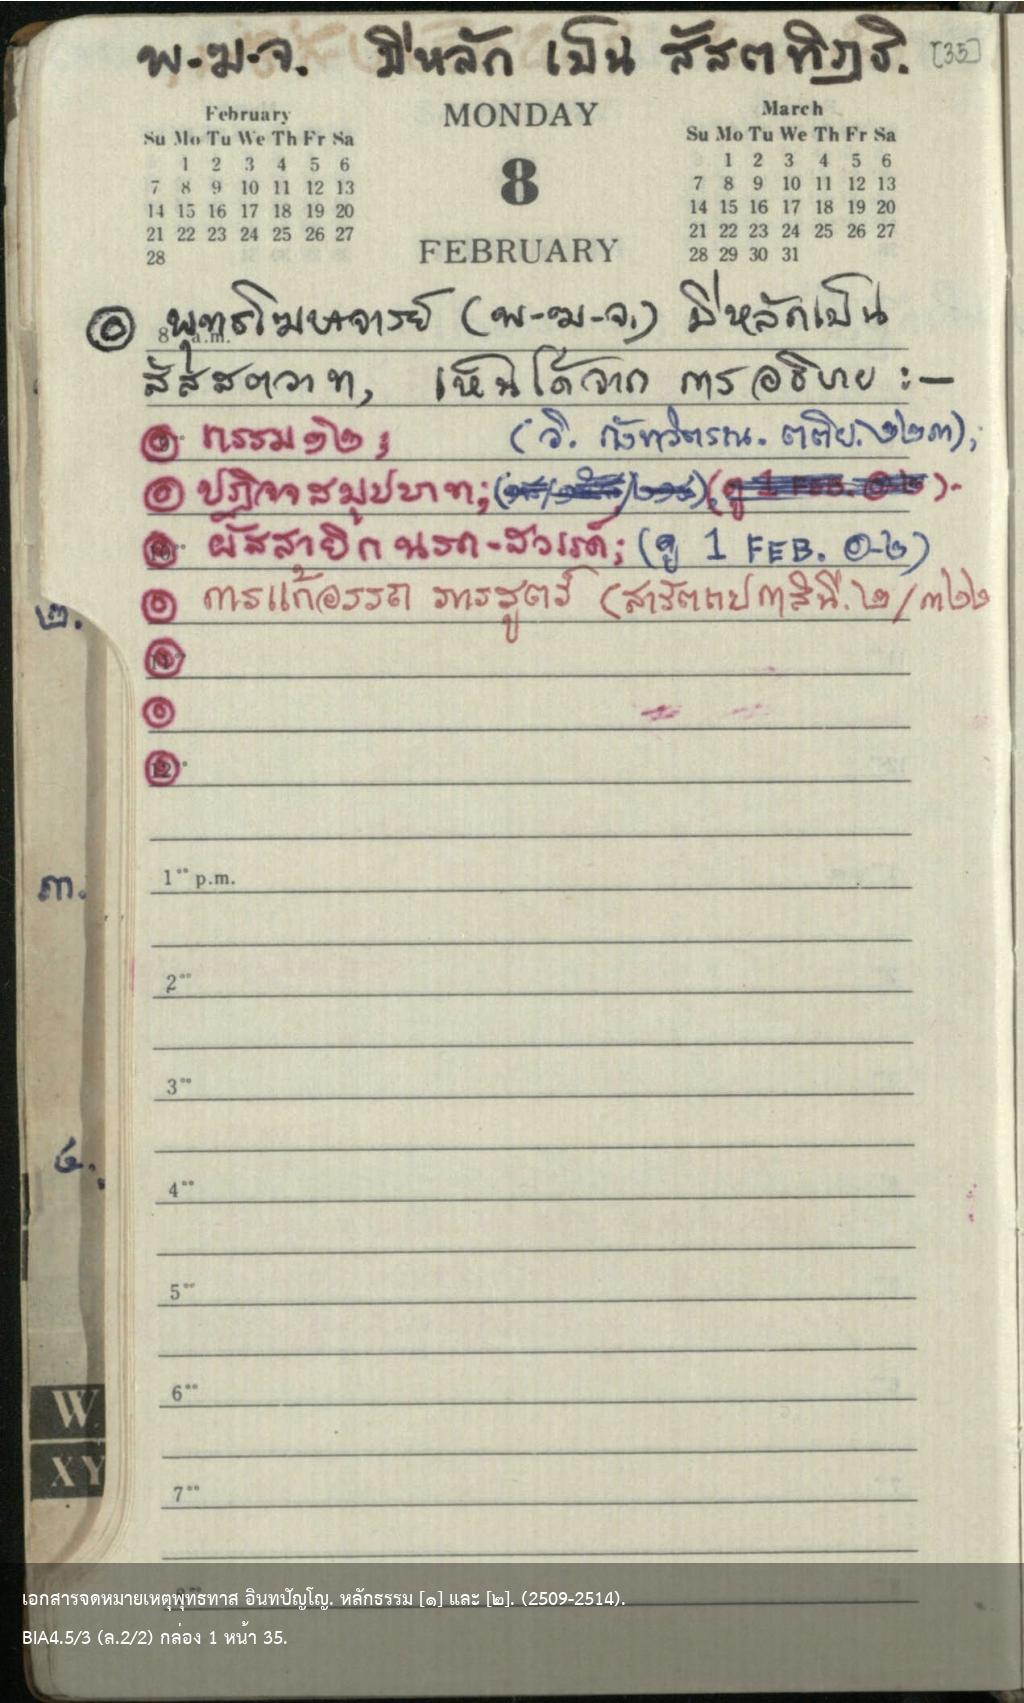 พ-ฆ-จ. มีหลัก เป็น สัสตทิฏฐิ. [35]
February
Su Mo Tu We Th Fr Sa
1 2 3 4 5 6
7 8 9 10 11 12 13
14 15 16 17 18 19 20
21 22 23 24 25 26 27
28
MONDAY
8
FEBRUARY
March
Su Mo Tu We Th Fr Sa
1 2 3 4 5 6
7 8 9 10 11 12 13
14 15 16 17 18 19 20
21 22 23 24 25 26 27
28 29 30 31
พุทธโฆษาจารย์ (พ-ฆ-จ.) มีหลักเป็น
8 a.m.
สัสสตวาท, เห็นได้จาก การอธิบาย :—
กรรม ๑๒; (วิ. กังขาวิตรณ. ตติย. ๒๒๓);
ปฏิจจสมุปบาท; (ดู 1 FEB. ๑-๒).
ผัสสายิก นรก-สวรรค์; (ดู 1 FEB. ๑-๒)
การแก้อรรถ ภารสูตร์ (สารัตถปกาสินี. ๒/๓๒๒
๒.
11°°
12°°
1°° p.m.
๓.
2°°
3°°
4°°
๔.
5°°
6°°
W
XY
7°°
เอกสารจดหมายเหตุพุทธทาส อินทปัญโญ. หลักธรรม [๑] และ [๒]. (2509-2514).
BIA4.5/3 (ล.2/2) กล่อง 1 หน้า 35.